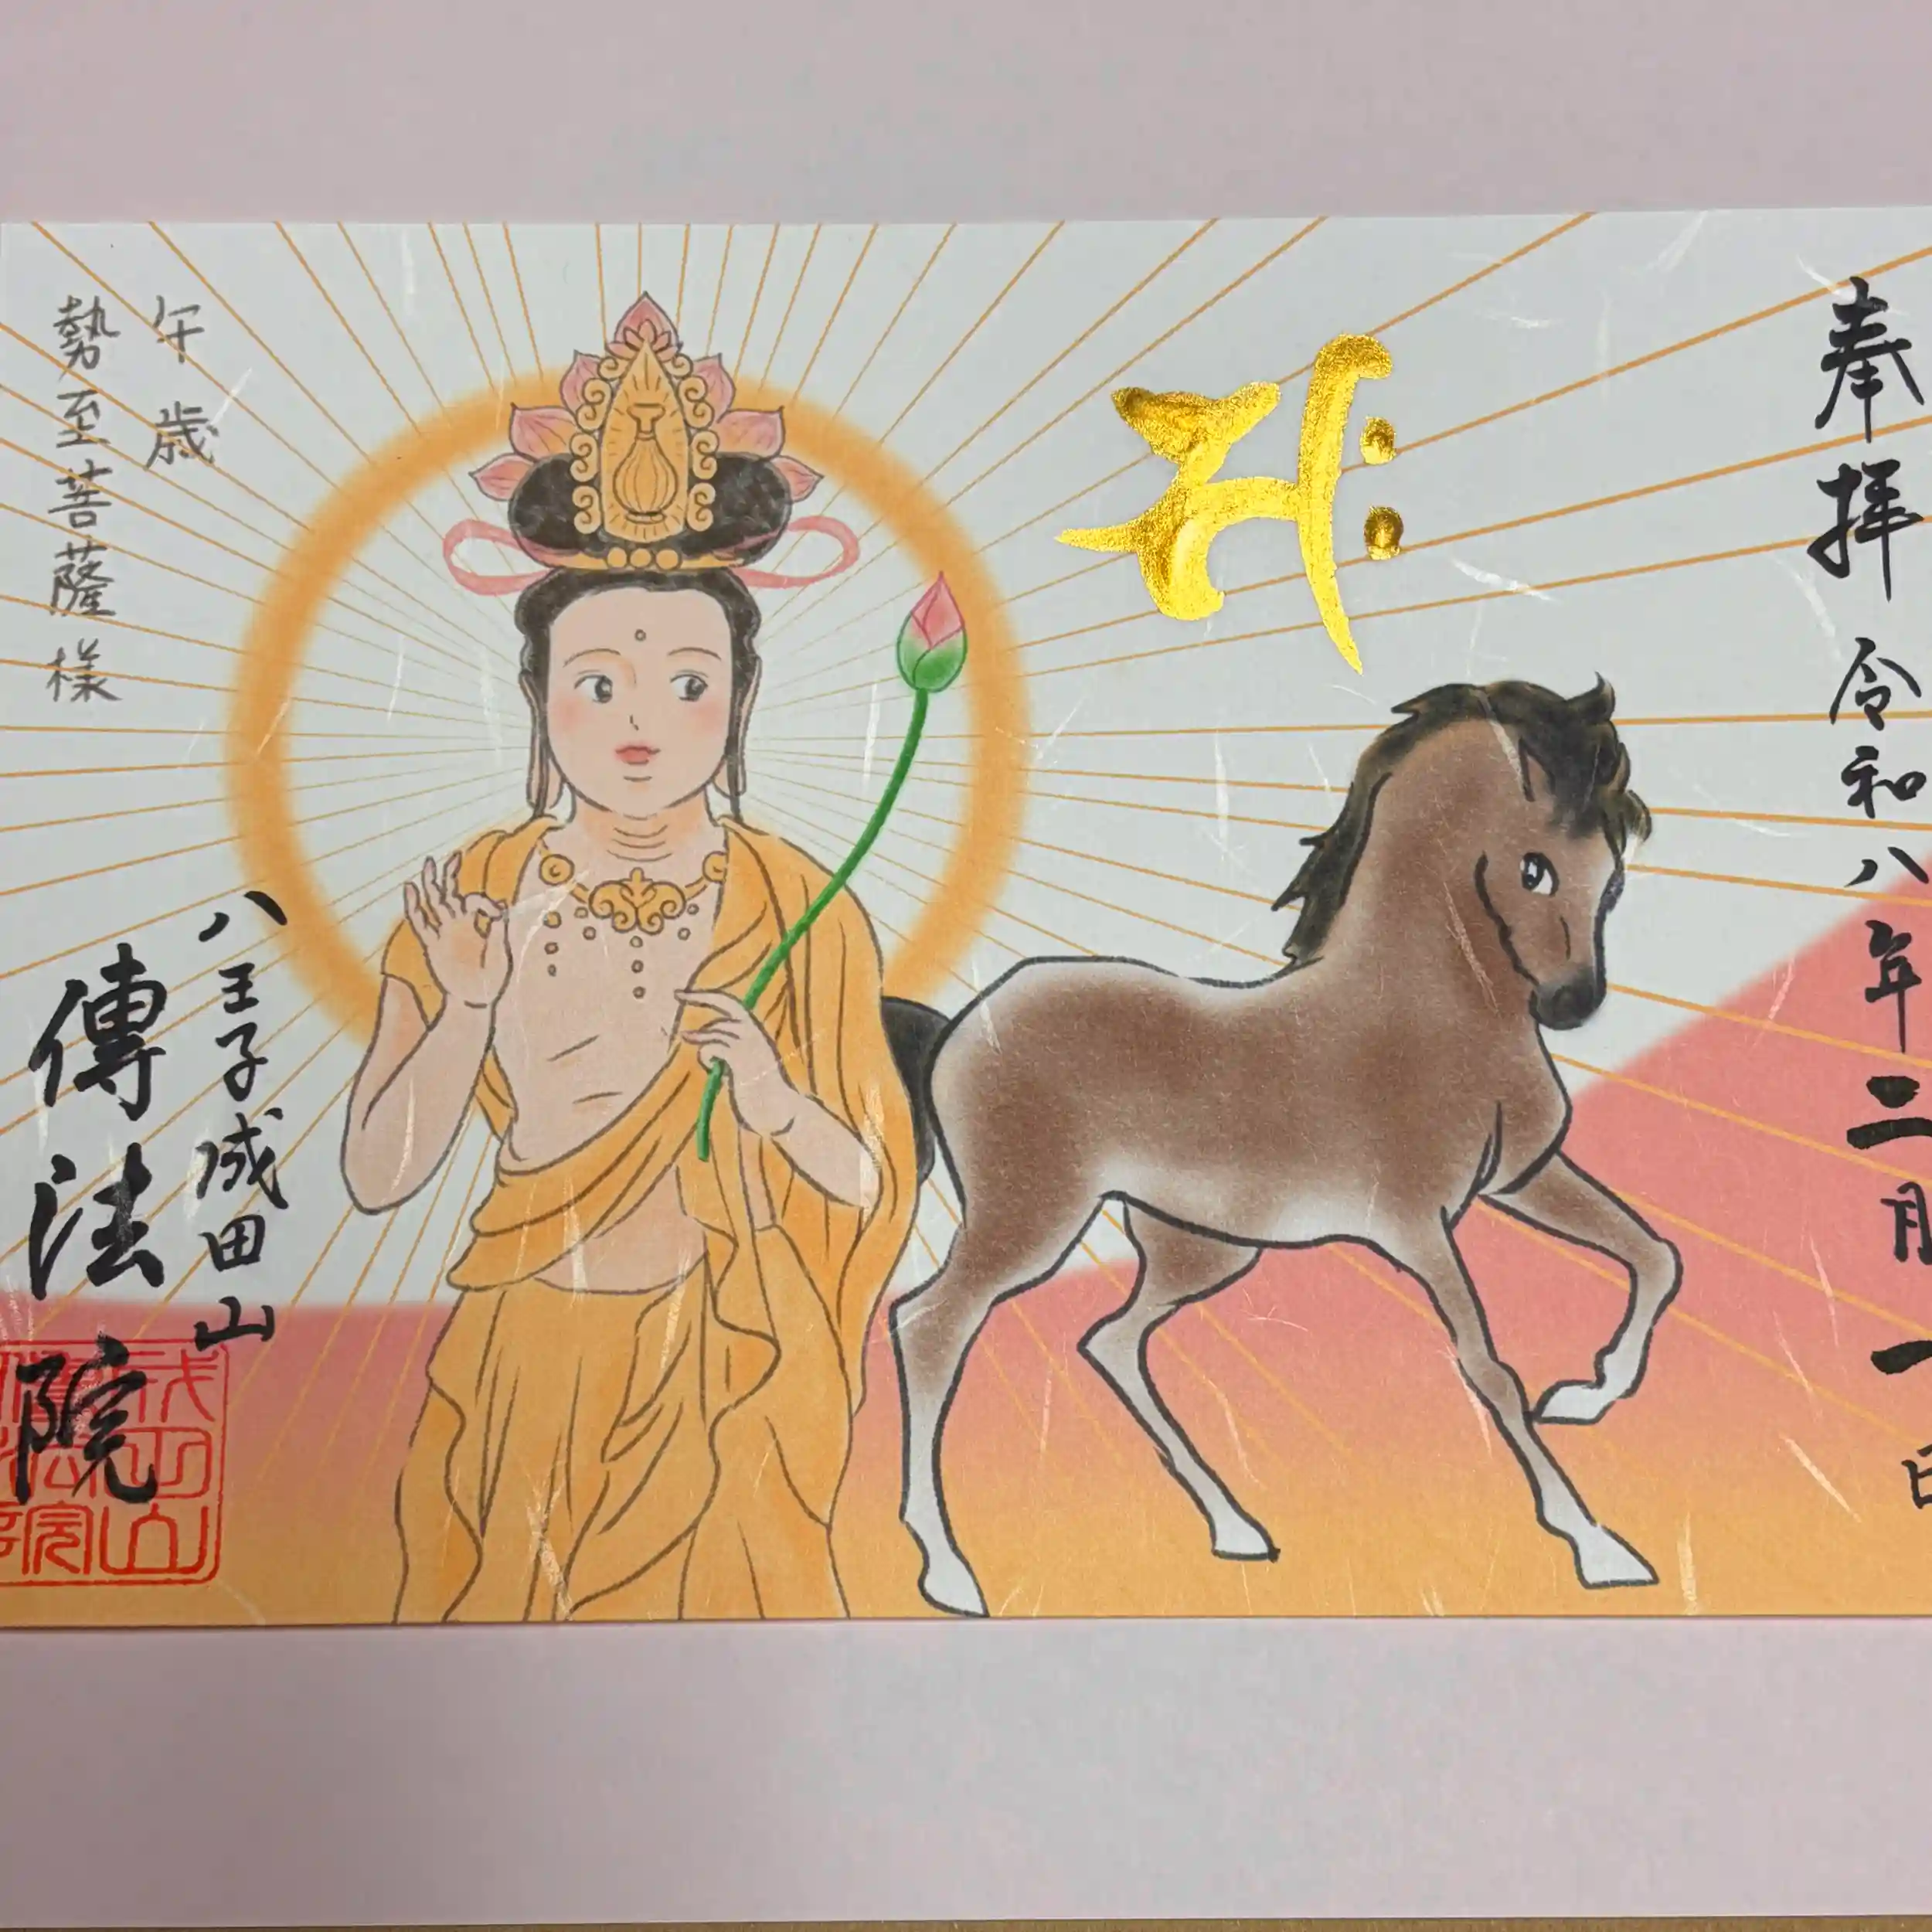 奉拝
令和八年二月一日
𑖭𑖾
午歳
勢至菩薩様
八王子成田山
傳法院